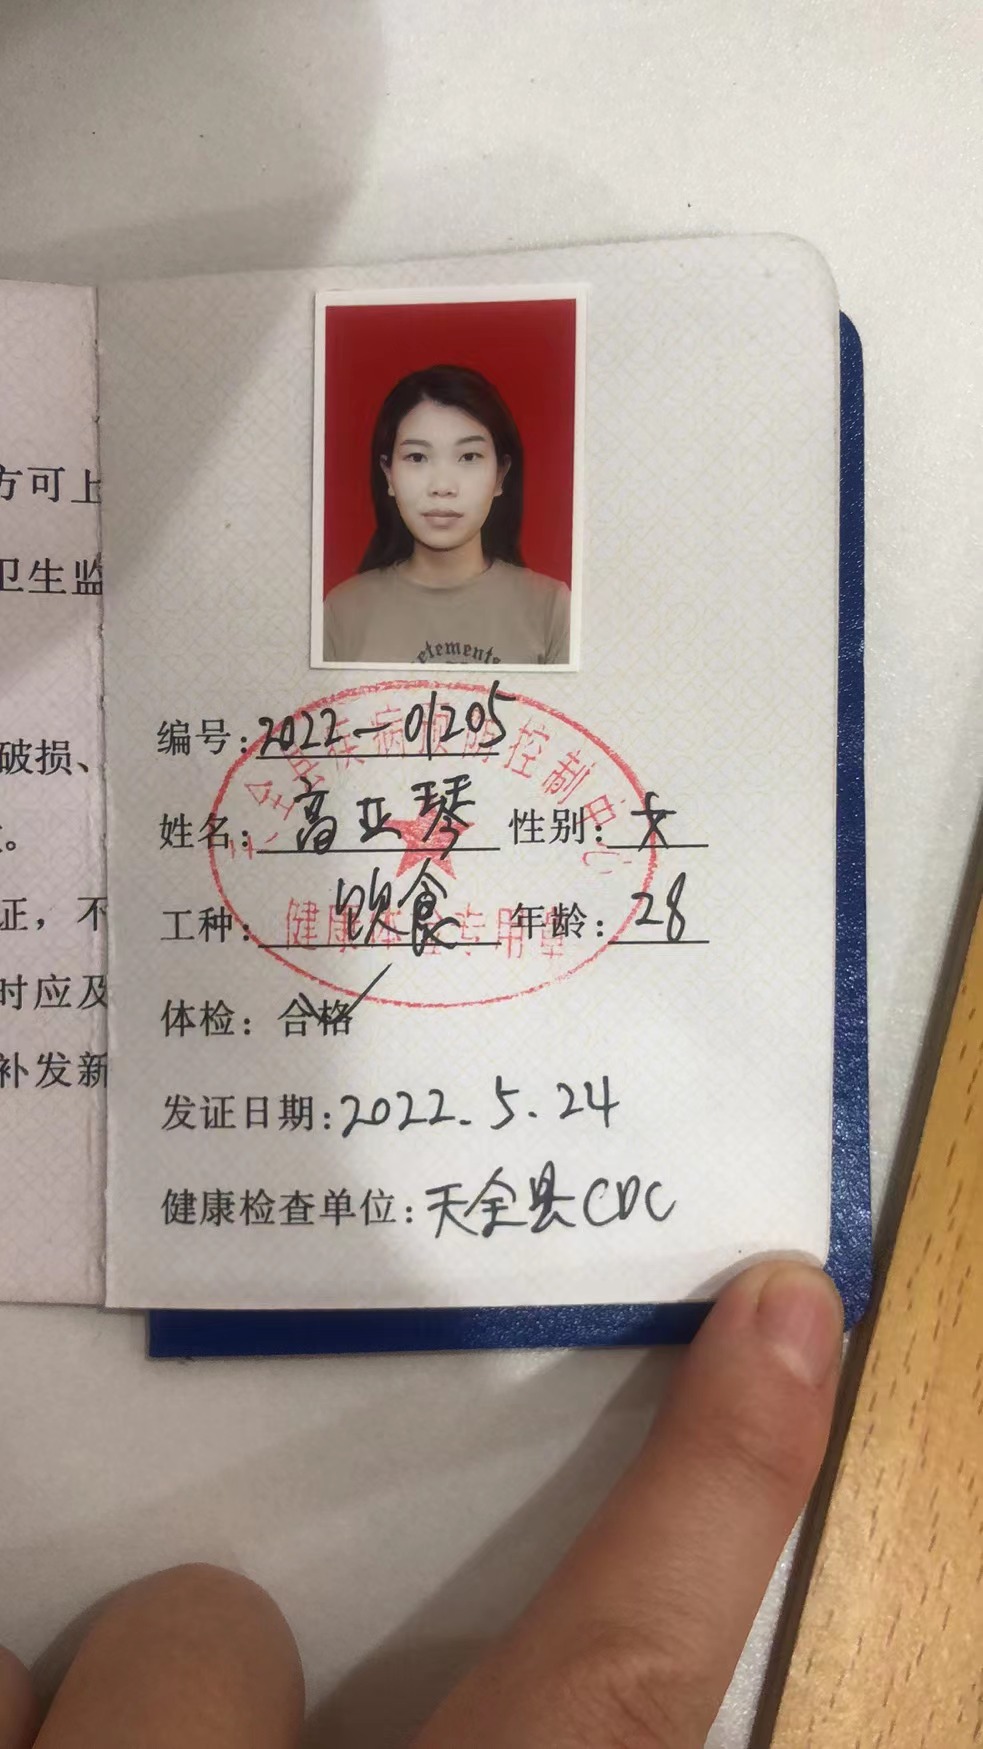 方可上
卫生监
破损、
。
证，不
时应及
补发新
etements
编号：2022－01205
姓名：高亚琴 性别：女
工种：饮食 年龄：28
体检：合格
发证日期：2022.5.24
健康检查单位：天全县CDC
天全县疾病预防控制中心
健康体检专用章